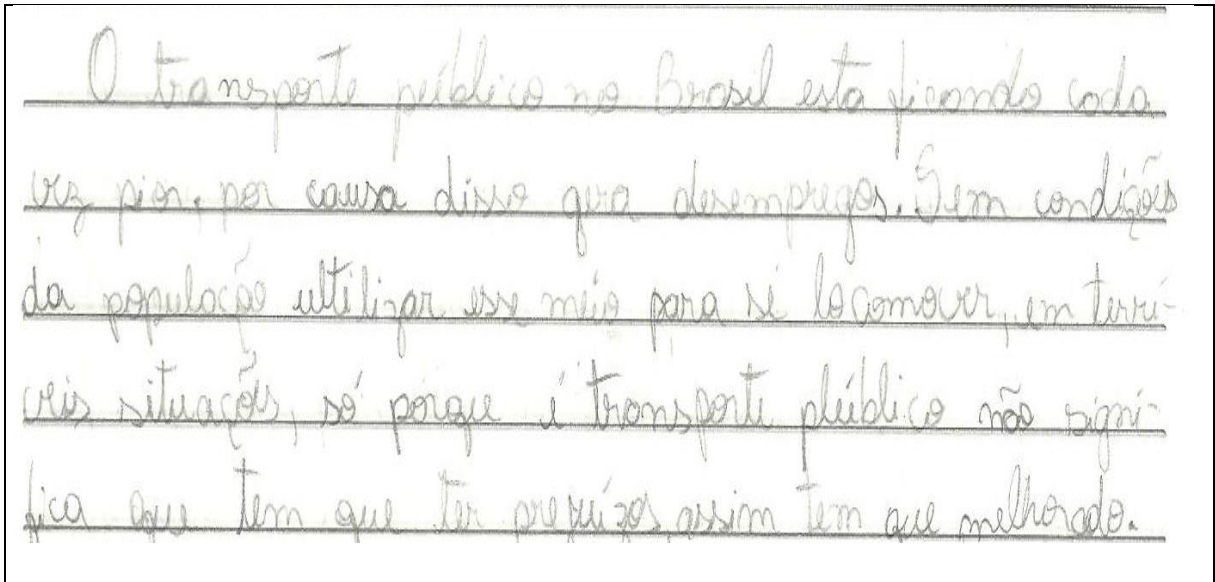 O transporte público no Brasil esta ficando cada
vez pior, por causa disso gera desempregos. Sem condições
da população ultilizar esse meio para sé locomover, em terri-
veis situações, só porque é transporte plúblico não signi-
fica que tem que ter prejuízos assim tem que melhorado.